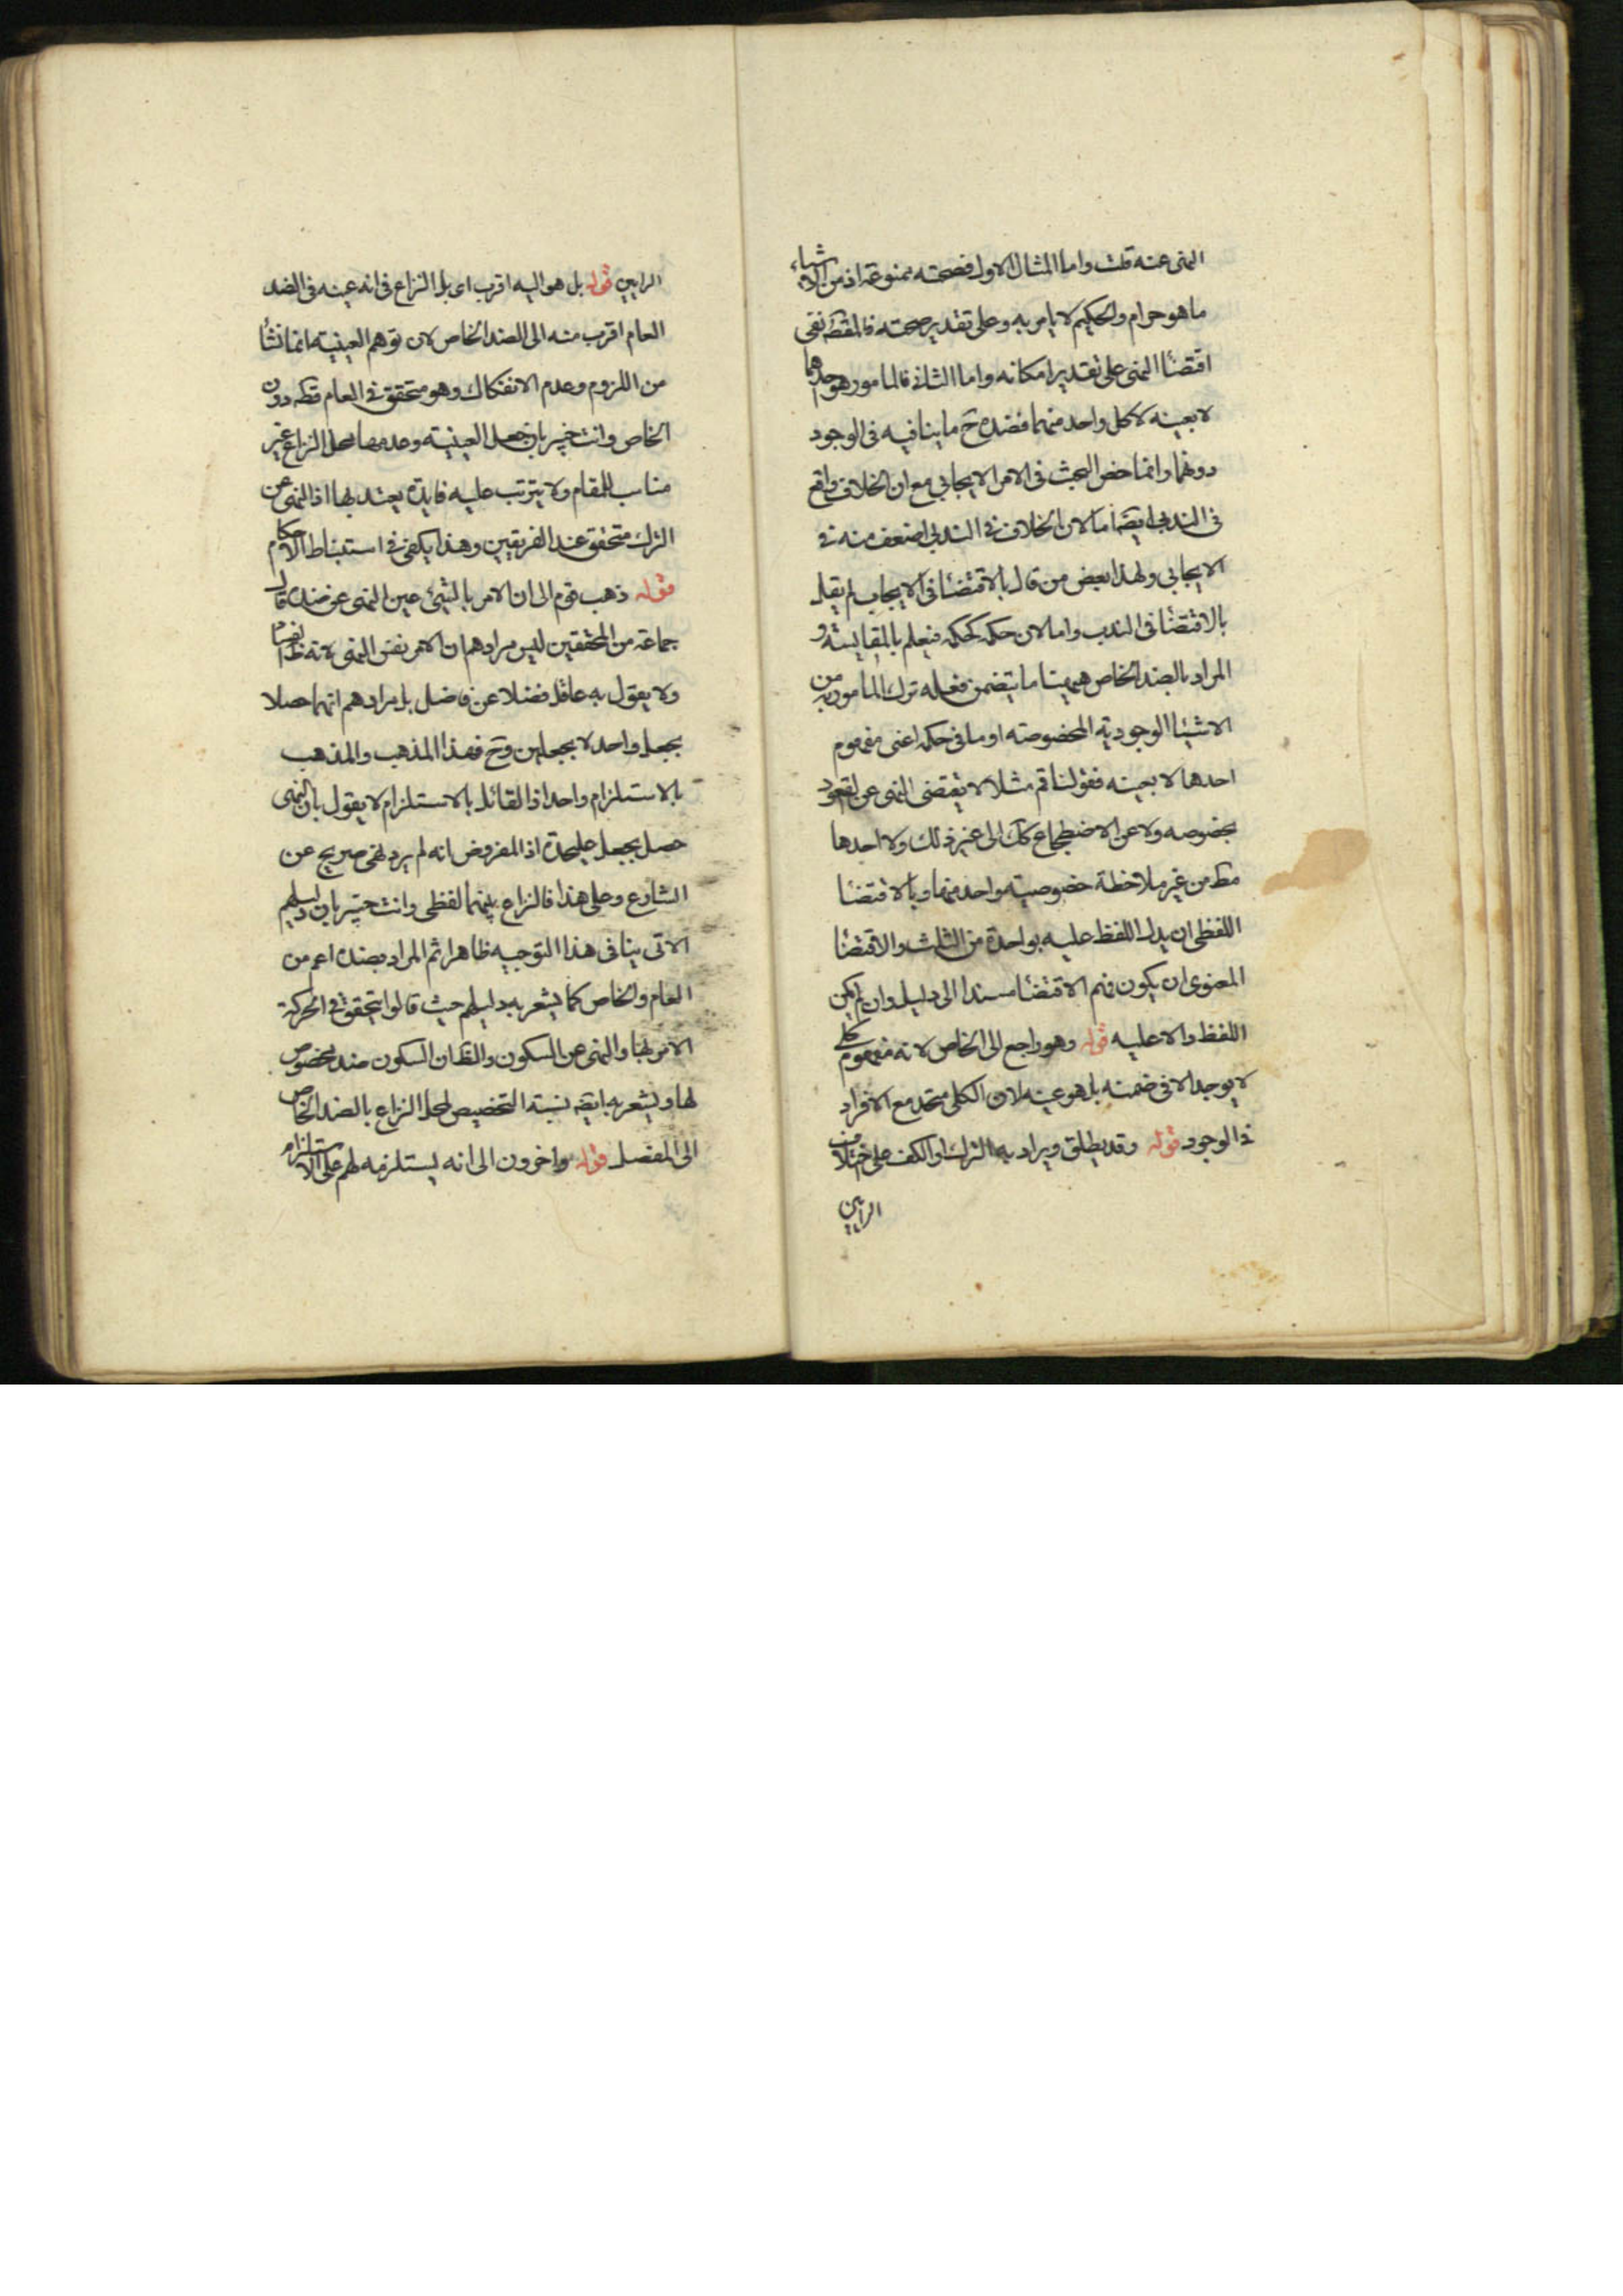 النهى عنه قلت واما المثال الاول فصحته ممنوعة اذ من الاشياء
ما هو حرام والحكيم لا يامر به وعلى تقدير صحته فالمقصه نفى
اقتضا النهى على تقدير امكانه واما الثانى فالمامور هو احدهما
لا بعينه لا كل واحد منهما فضده ح ما ينافيه فى الوجود
دونهما وانما خص البحث فى الامر الايجابى مع ان الخلاف واقع
فى الندبى ايضه اما لان الخلاف فى الندبى اضعف منه فى
الايجابى ولهذا بعض من قال بالاقتضا فى الايجاب لم يقل
بالاقتضا فى الندب واما لان حكمه كحكمه فيعلم بالمقايسة و
المراد بالضد الخاص ههنا ما يتضمن فعله ترك المامور به من
الاشيا الوجودية المخصوصة او ما فى حكمه اعنى مفهوم
احدها لا بعينه فقولنا قم مثلا لا يقتضى النهى عن القعود
بخصوصه ولا عن الاضطجاع كك الى غير ذلك ولا احدها
مط من غير ملاحظة خصوصية واحد منها وبالاقتضا
اللفظى ان يدل اللفظ عليه بواحدة من الثلث والاقتضا
المعنوى ان يكون فهم الاقتضا مسندا الى دليل وان لم يكن
اللفظ دالا عليه قوله وهو راجع الى الخاص لانه مفهوم كلى
لا يوجد الا فى ضمنه بل هو عينه لان الكلى متحد مع الافراد
فى الوجود قوله وقد يطلق ويراد به الترك او الكف على اختلاف
الرايين
الرايين قوله بل هى اليه اقرب اى بل النزاع فى انه عينه فى الضد
العام اقرب منه الى الضد الخاص لان توهم العينية انما نشأ
من اللزوم وعدم الانفكاك وهو متحقق فى العام قطه دون
الخاص وانت خبير بان جعل العينية وعدمها محل النزاع غير
مناسب للمقام ولا يترتب عليه فايدة يعتد بها اذ النهى عن
الترك متحقق عند الفريقين وهذا يكفى فى استنباط الاحكام
قوله ذهب قوم الى ان الامر بالشيئ عين النهى عن ضده قال
جماعة من المحققين ليس مرادهم ان الامر نفس النهى لانه ظه الفساد
ولا يقول به عاقل فضلا عن فاضل بل مرادهم انهما حصلا
بجعل واحد لا بجعلين وح فهذا المذهب والمذهب
بالاستلزام واحد اذ القائل بالاستلزام لا يقول بان النهى
حصل بجعل عليحدة اذ المفروض انه لم يرد نهى صريح عن
الشارع وعلى هذا فالنزاع بينهما لفظى وانت خبير بان دليلهم
الاتى ينافى هذا التوجيه ظاهرا ثم المراد بضده اعم من
العام والخاص كما يشعر به دليلهم حيث قالوا يتحقق فى الحركة
الامر بها والنهى عن السكون والظه ان السكون ضد مخصوص
لها ويشعر به ايضه نسبة التخصيص لمحل النزاع بالضد الخاص
الى المفصل قوله واخرون الى انه يستلزمه لهم على الاستلزام